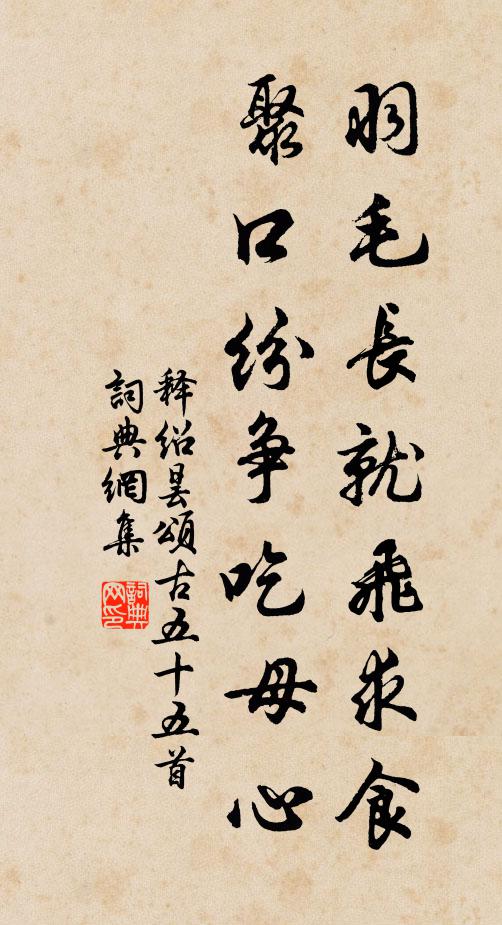 羽毛長就飛求食
聚口紛爭吃母心
释绍昙頌古五十五首
詞典網集
詞典網印